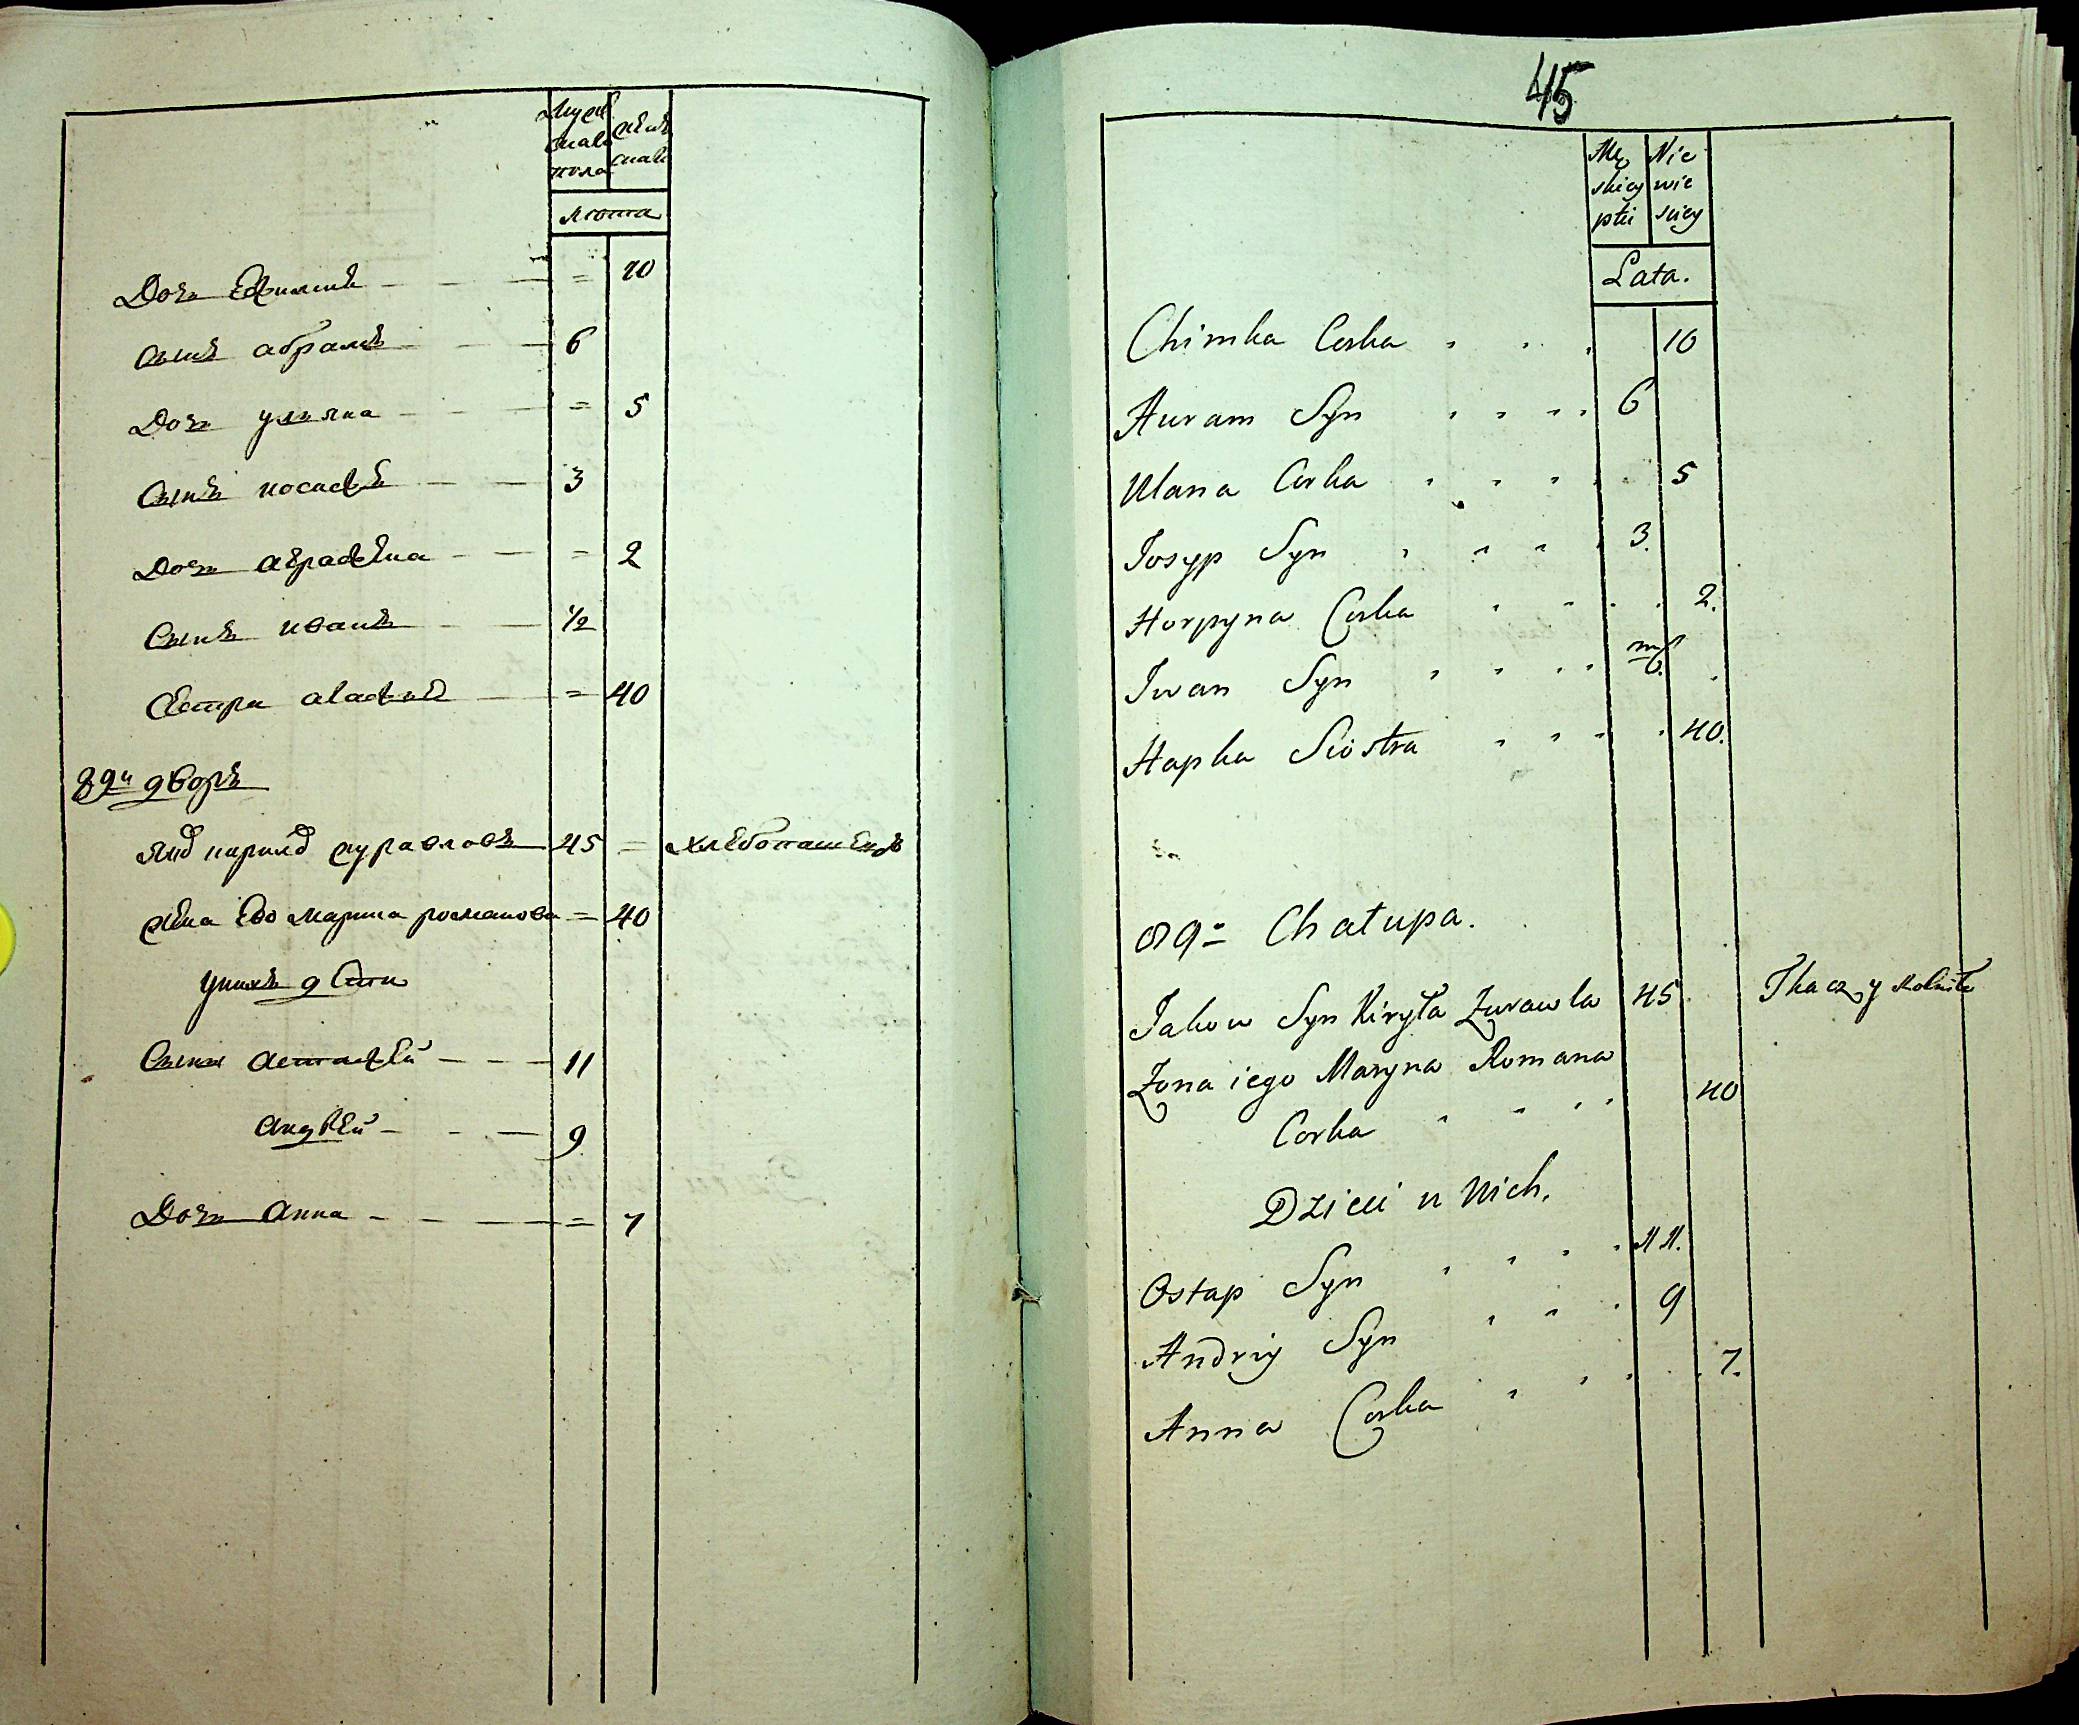 Мужес
каго
пола
женс
каго
лѣта
Дочь Ефимия 10
Сынъ абрамъ 6
Дочь ульяна = 5
Сынъ иосифъ 3
Дочь аграфена = 2
Сынъ иванъ 1/2
Сестра агафия = 40
89й дворъ
кирилов журавловъ 45 = хлебопашецъ
жена Его марина романова = 40
унихъ дети
Сыны астафей 11
андрей 9
Дочь анна = 7
45
Mę
skiey
płci
Nie
wie
sciey
Lata.
Chimka Corka 10
Auram Syn 6
Ulana Corka 5
Josyp Syn 3.
Horpyna Corka 2.
Iwan Syn
Hapka Siostra 40.
89a Chałupa.
Jakow Syn Kiryła Żurawla 45 Tkacz y
Żona iego Maryna Romana
Corka 40
Dzieci u Nich.
Ostap Syn 11.
Andriy Syn 9
Anna Corka 7.